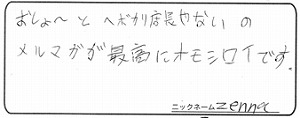 おしょ〜と ヘボカリ店長やないの
メルマガが最高にオモシロイです。
ニックネーム zenna